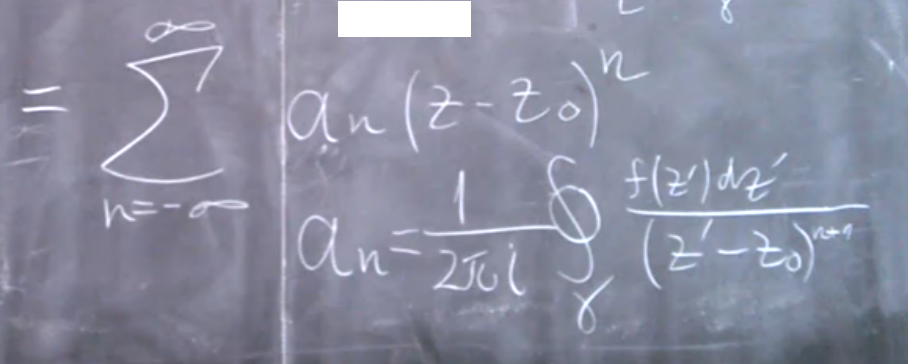 = ∑_{n=-∞}^{∞} a_n (z - z_0)^n
a_n = \frac{1}{2πi} ∮_γ \frac{f(z')dz'}{(z' - z_0)^{n+1}}